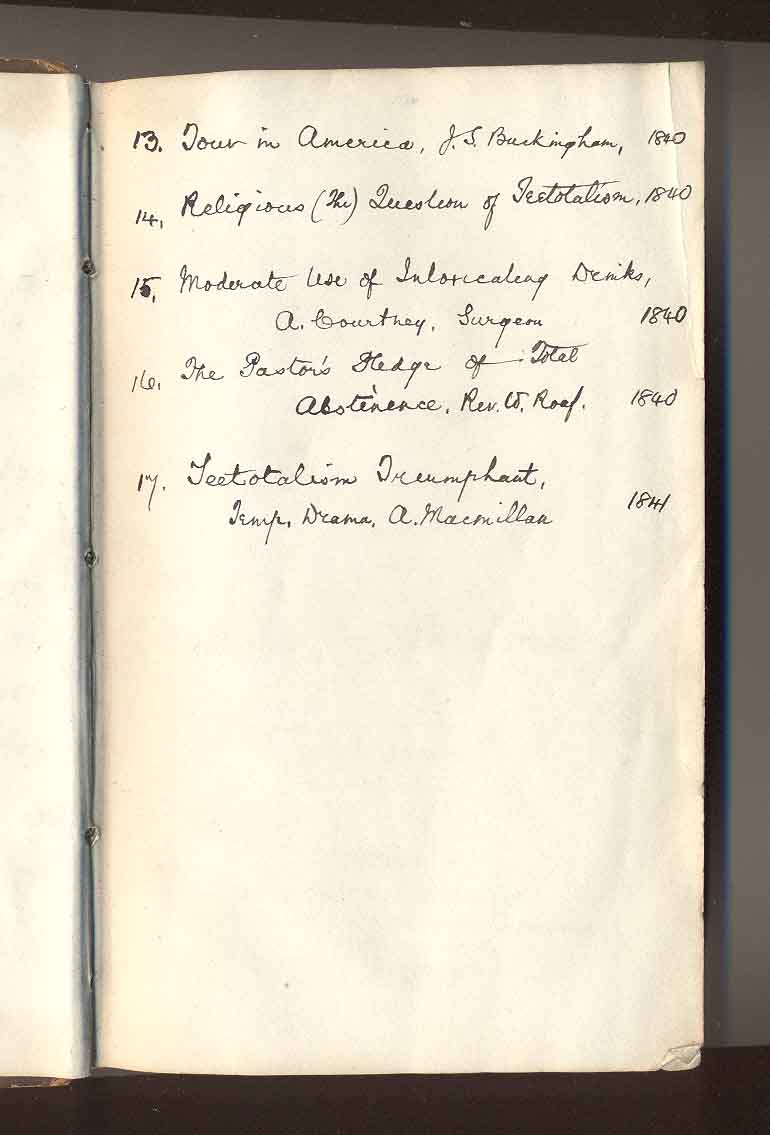 13. Tour in America, J. S. Buckingham, 1840
14. Religious (The) Question of Teetotalism, 1840
15. Moderate Use of Intoxicating Drinks,
A. Courtney, Surgeon 1840
16. The Pastor's Pledge of Total
Abstinence, Rev. W. Roaf. 1840
17. Teetotalism Triumphant,
Temp. Drama, A. Macmillan 1841